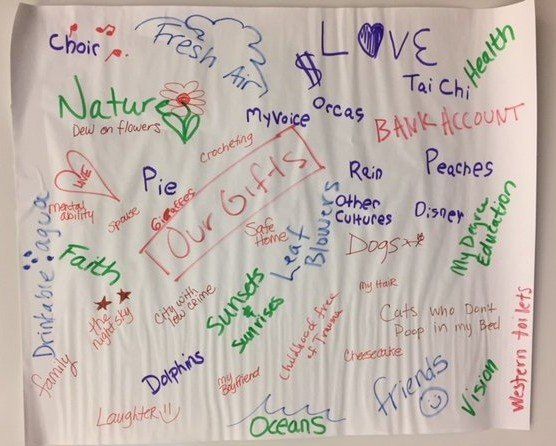 Choir
Fresh Air
LOVE
Health
$
Tai Chi
Nature
Dew on flowers
My Voice
Orcas
BANK ACCOUNT
Crocheting
LOVE
Pie
Rain
Peaches
mental
ability
Spouse
Giraffes
OUR GiFTs
Other
Cultures
Disney
My Degree
Education
Drinkable agua
Safe
Home
Leaf
Blowers
Dogs
Faith
the
night sky
City with
low crime
Sunsets
&
Sunrises
My Hair
Cats who Don't
Poop in my Bed
Western toilets
Childhood free
of Trauma
Cheesecake
family
Dolphins
my
Boyfriend
friends
Vision
Laughter
Oceans